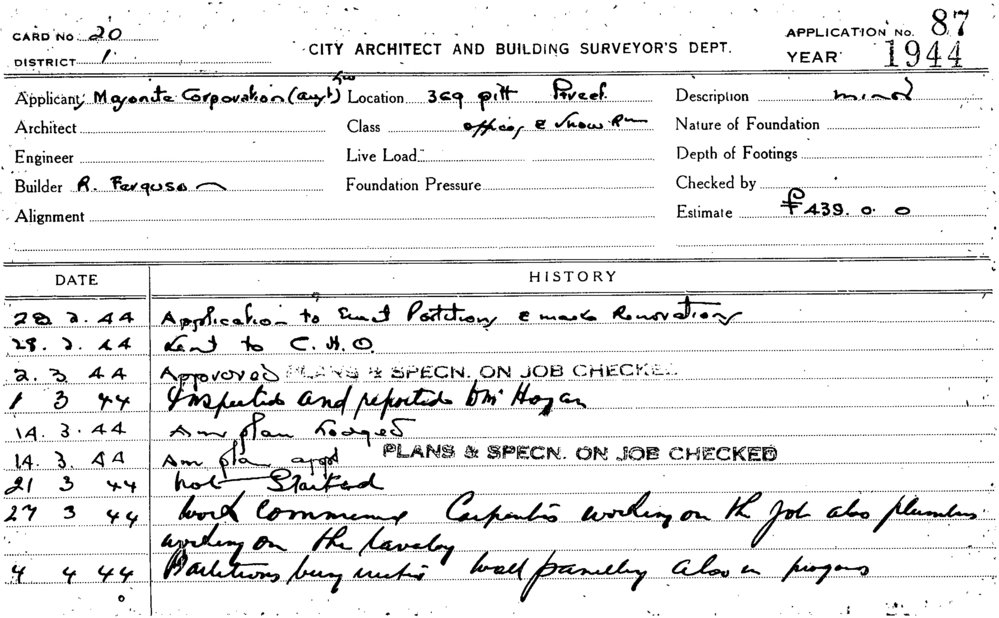 CARD No 20
DISTRICT 1
CITY ARCHITECT AND BUILDING SURVEYOR'S DEPT.
APPLICATION No. 87
YEAR 1944
Applicant Masonite Corporation (aust)
Location 369 Pitt Street
Description minor
Architect
Class offices & Show Rm
Nature of Foundation
Engineer
Live Load
Depth of Footings
Builder R. Ferguson
Foundation Pressure
Checked by
Alignment
Estimate £439. 0. 0
DATE HISTORY
28 2. 44 Application to Erect Partitions & make Renovations
28. 2. 44 Sent to C. H. O.
2. 3 44 Approved PLANS & SPECN. ON JOB CHECKED
1 3 44 Inspected and reported Mr Hogan
14. 3. 44 Am plan Lodged
14. 3. 44 Am pla appd PLANS & SPECN. ON JOB CHECKED
21 3 44 not Started
27 3 44 Work commenced Carpenters working on the job also plumbers
working on the Lavatory
4 4 44 Partitions being erected wall panelling also in progress